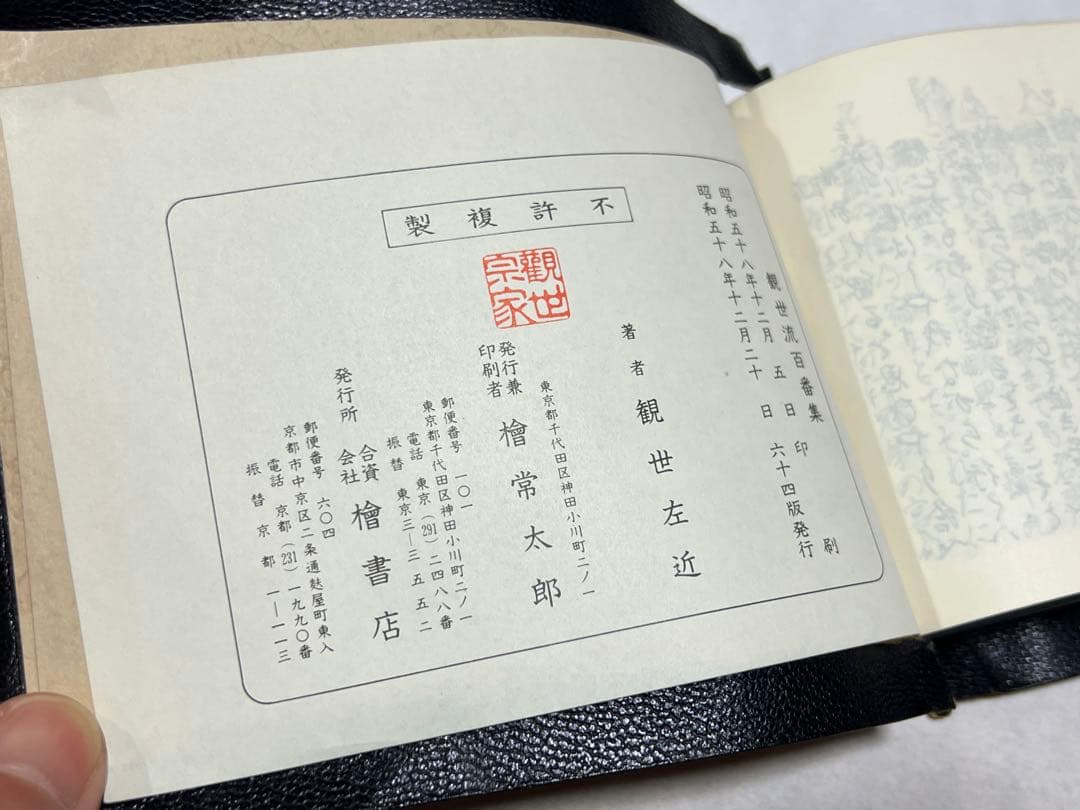 観世流百番集
昭和五十八年十二月五日印刷
昭和五十八年十二月二十日六十四版発行
不許複製
觀世宗家
著者 観世左近
東京都千代田区神田小川町二ノ一
発行兼印刷者 檜常太郎
郵便番号 一〇一
東京都千代田区神田小川町二ノ一
電話 東京(291)二四八八番
振替 東京三―三五五二
発行所 合資会社 檜書店
郵便番号 六〇四
京都市中京区二条通麩屋町東入
電話 京都(231)一九九〇番
振替京都 一―一一三